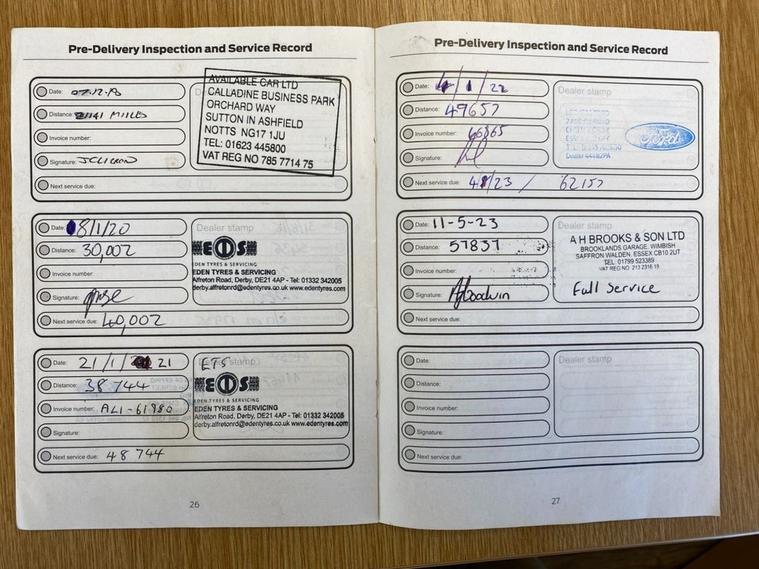 Pre-Delivery Inspection and Service Record
Date: 07.12.
Distance: MILES
Invoice number:
Signature:
Next service due:
AVAILABLE CAR LTD
CALLADINE BUSINESS PARK
ORCHARD WAY
SUTTON IN ASHFIELD
NOTTS NG17 1JU
TEL: 01623 445800
VAT REG NO 785 7714 75
Date: 8/1/20
Distance: 30,002
Invoice number:
Signature:
Next service due: 40,002
Dealer stamp
EDEN TYRES & SERVICING
EDEN TYRES & SERVICING
Alfreton Road, Derby, DE21 4AP - Tel: 01332 342005
derby.alfretonrd@edentyres.co.uk www.edentyres.com
Date: 21/1/ 21
Distance: 38744
Invoice number: AL1-61980
Signature:
Next service due: 48744
ETS stamp
EDEN TYRES & SERVICING
EDEN TYRES & SERVICING
Alfreton Road, Derby, DE21 4AP - Tel: 01332 342005
derby.alfretonrd@edentyres.co.uk www.edentyres.com
26
Pre-Delivery Inspection and Service Record
Date: 4/1/22
Distance: 49657
Invoice number:
Signature:
Next service due: 4/1/23 / 62157
Dealer stamp
Ford
Date: 11-5-23
Distance: 57837
Invoice number:
Signature: AJGoodwin
Next service due:
Dealer stamp
A H BROOKS & SON LTD
BROOKLANDS GARAGE, WIMBISH
SAFFRON WALDEN, ESSEX CB10 2UT
TEL. 01799 523389
VAT REG NO. 213 2316 19
Full Service
Date:
Distance:
Invoice number:
Signature:
Next service due:
Dealer stamp
27